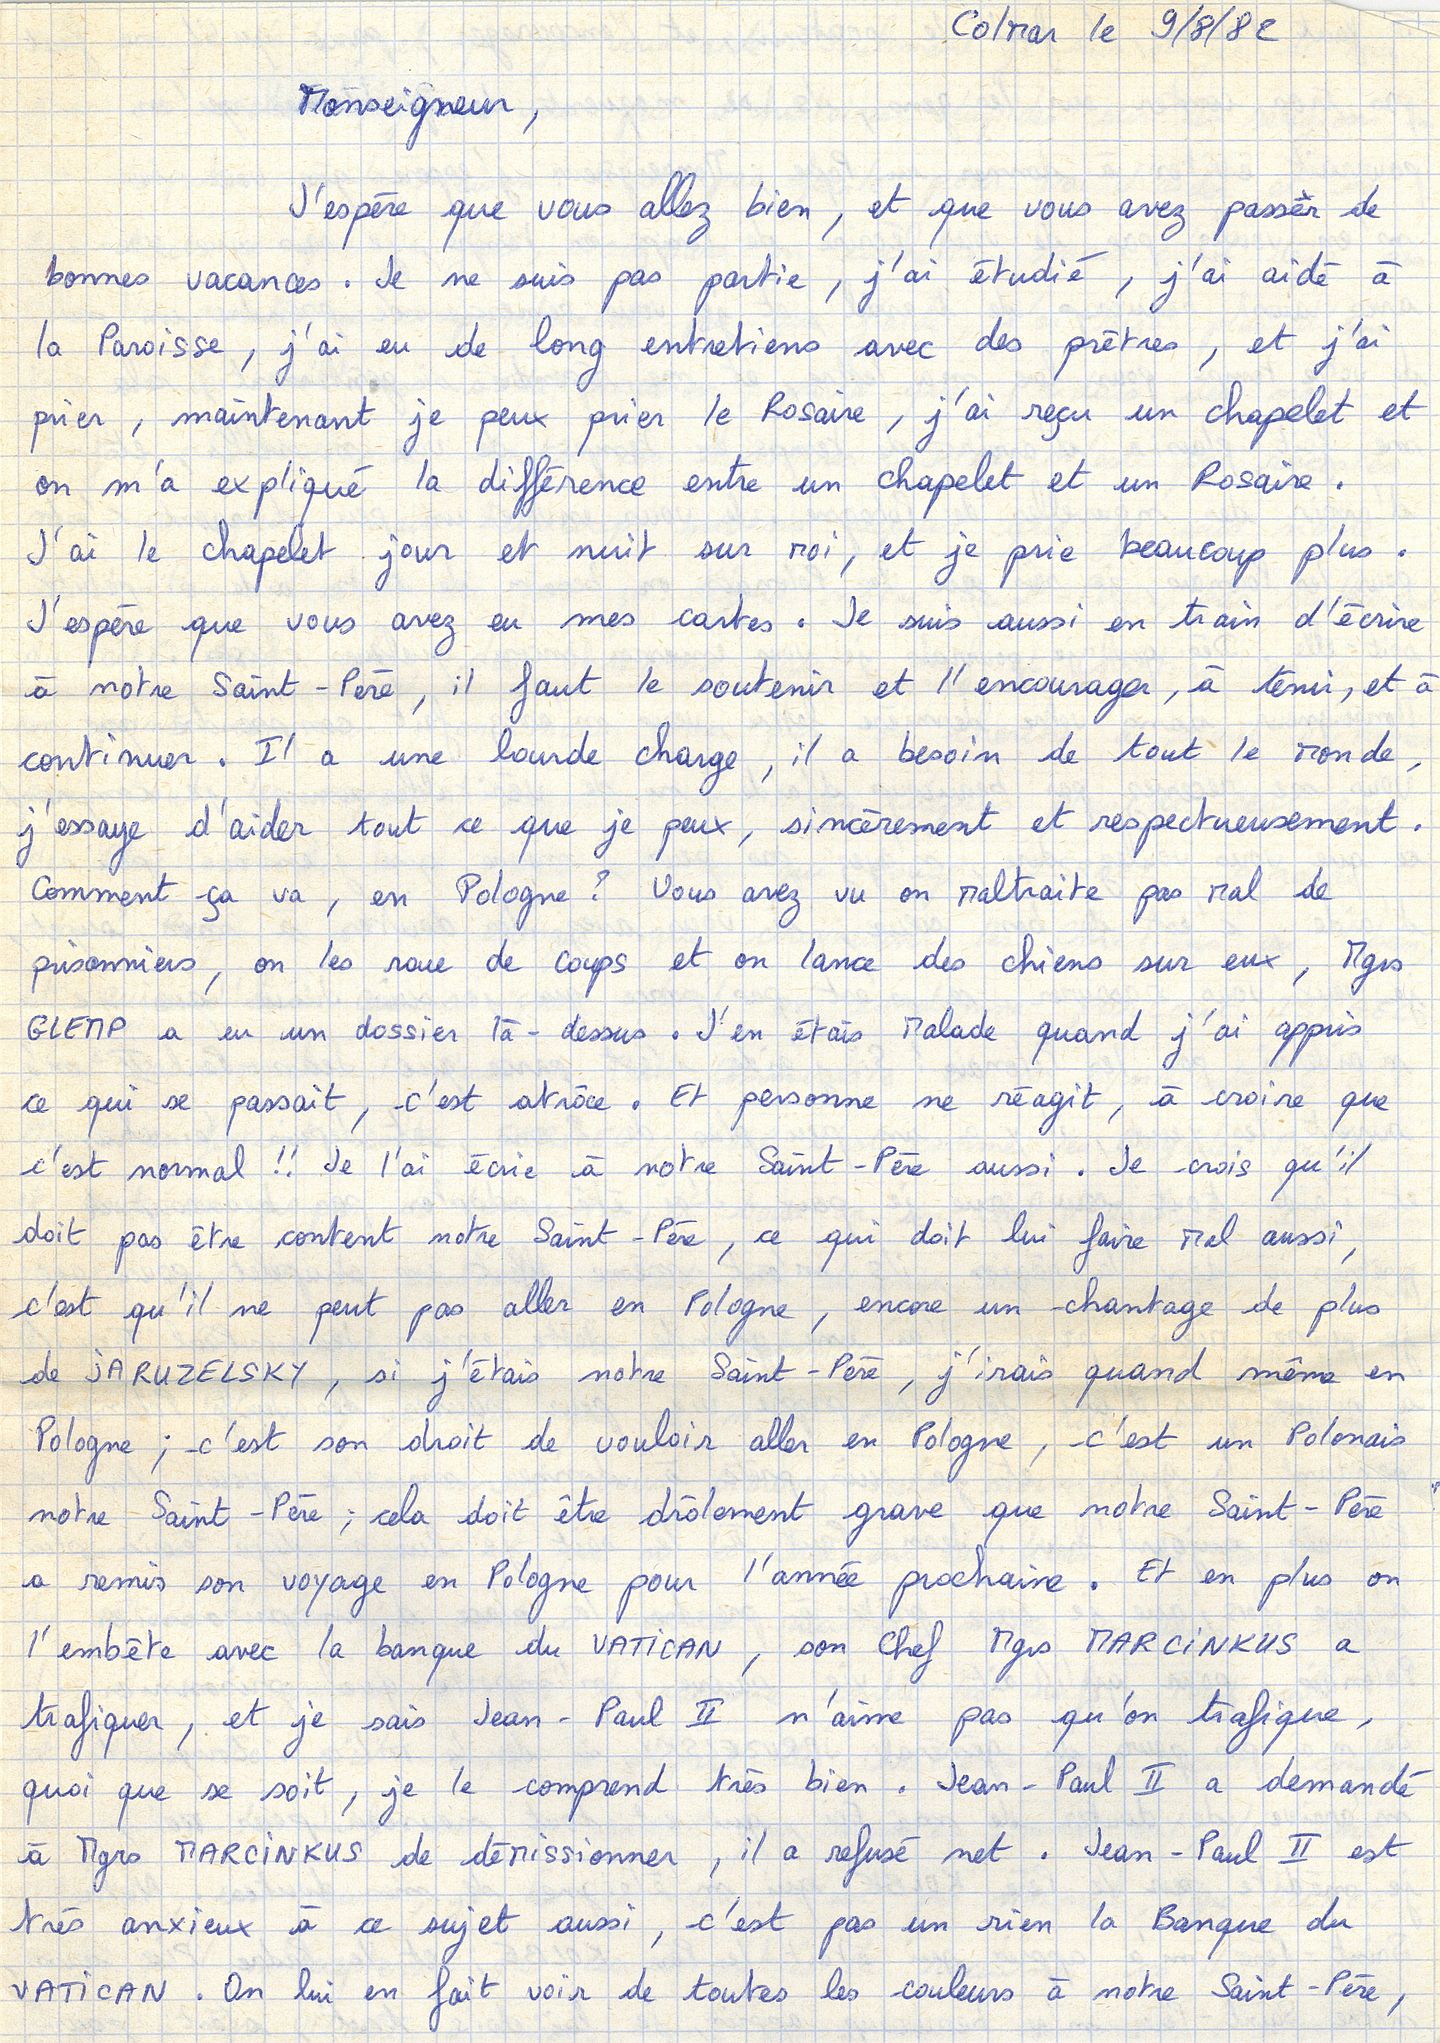 Colmar le 9/8/82
Monseigneur,
J'espère que vous allez bien, et que vous avez passèr de
bonnes vacances. Je ne suis pas partie, j'ai étudié, j'ai aidé à
la Paroisse, j'ai eu de long entretiens avec des prêtres, et j'ai
prier, maintenant je peux prier le Rosaire, j'ai reçu un chapelet et
on m'a expliqué la différence entre un chapelet et un Rosaire.
J'ai le chapelet jour et nuit sur moi, et je prie beaucoup plus.
J'espère que vous avez eu mes cartes. Je suis aussi en train d'écrire
à notre Saint-Père, il faut le soutenir et l'encourager, à tenir, et à
continuer. Il a une lourde charge, il a besoin de tout le monde,
j'essaye d'aider tout ce que je peux, sincèrement et respectueusement.
Comment ça va, en Pologne? Vous avez vu on maltraite pas mal de
prisonniers, on les roue de coups et on lance des chiens sur eux, Mgrs
GLEMP a eu un dossier là-dessus. J'en étais malade quand j'ai appris
ce qui se passait, c'est atrôce. Et personne ne réagit, à croire que
c'est normal !! Je l'ai écrie à notre Saint-Père aussi. Je crois qu'il
doit pas être content notre Saint-Père, ce qui doit lui faire mal aussi,
c'est qu'il ne peut pas aller en Pologne, encore un chantage de plus
de JARUZELSKY, si j'étais notre Saint-Père, j'irais quand même en
Pologne; c'est son droit de vouloir aller en Pologne, c'est un Polonais
notre Saint-Père; cela doit être drôlement grave que notre Saint-Père
a remis son voyage en Pologne pour l'année prochaine. Et en plus on
l'embête avec la banque du VATICAN, son Chef Mgrs MARCINKUS a
trafiquer, et je sais Jean-Paul II n'aime pas qu'on trafique,
quoi que se soit, je le comprend très bien. Jean-Paul II a demandé
à Mgrs MARCINKUS de démissionner, il a refusé net. Jean-Paul II est
très anxieux à ce sujet aussi, c'est pas un rien la Banque du
VATICAN. On lui en fait voir de toutes les couleurs à notre Saint-Père,